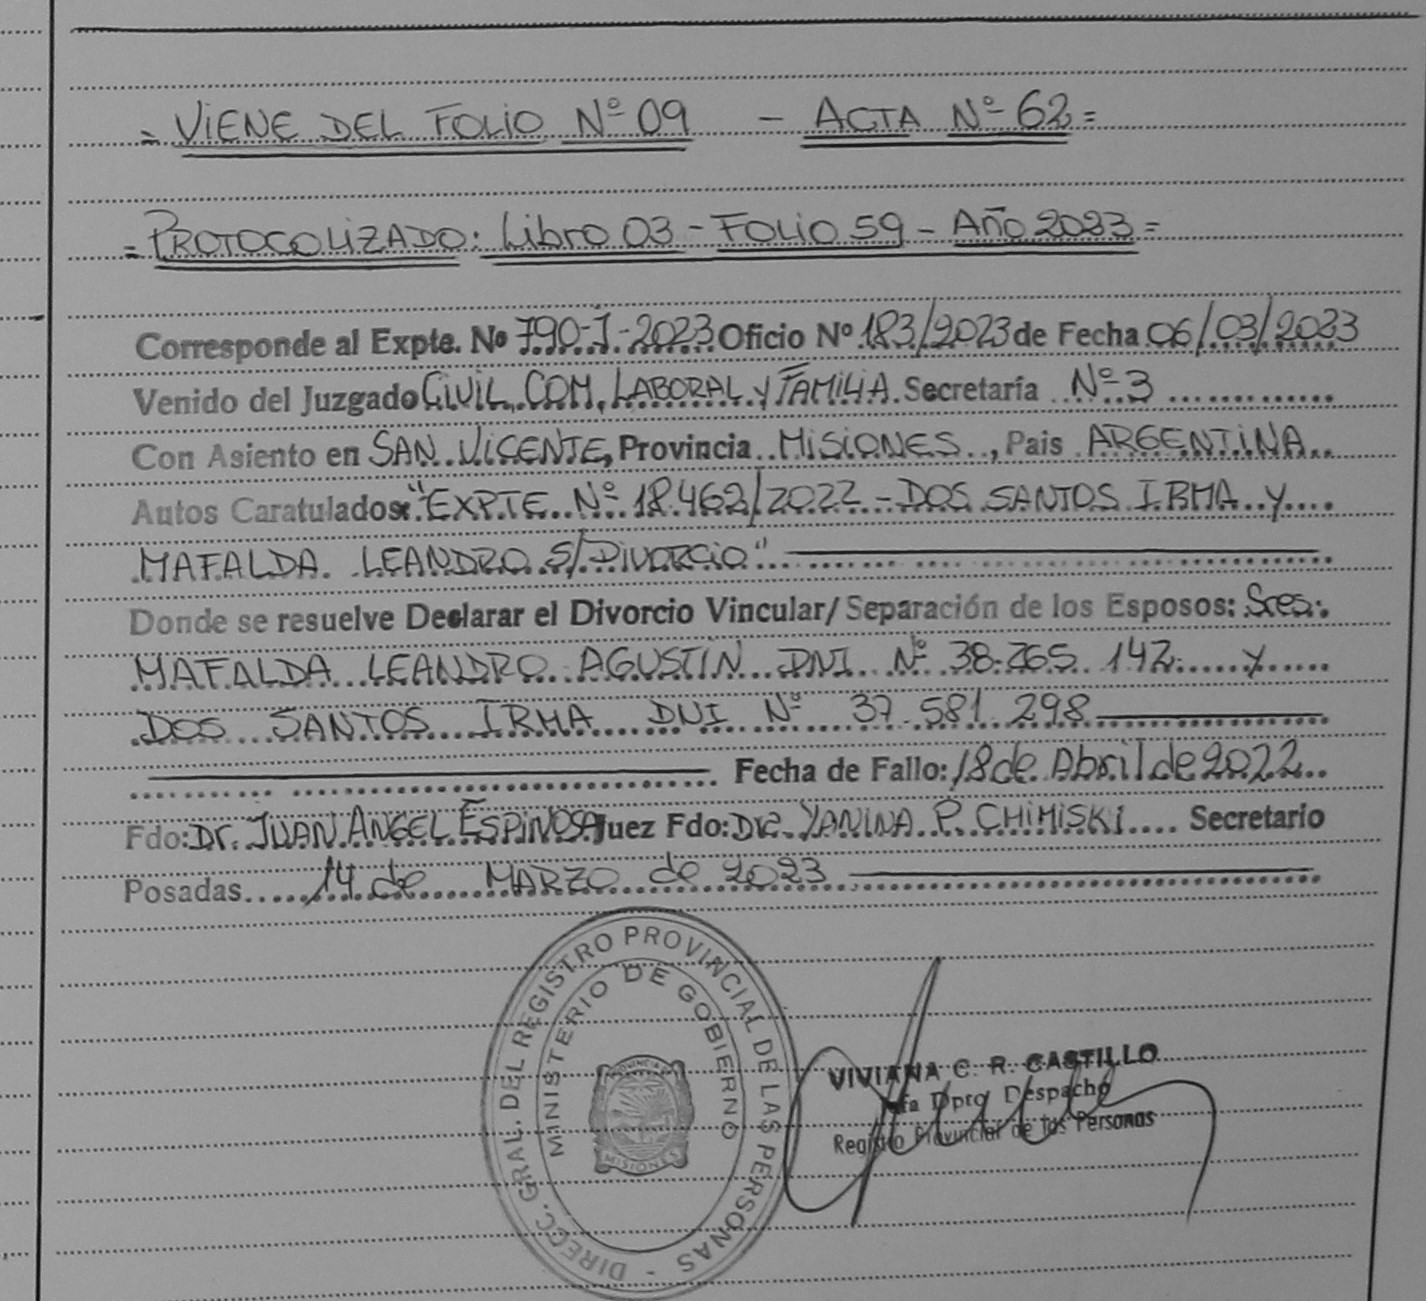 = VIENE DEL FOLIO Nº 09 - ACTA Nº 62 =
= PROTOCOLIZADO: Libro 03 - FOLIO 59 - Año 2023 =
Corresponde al Expte. Nº 790-J-2023 Oficio Nº 183/2023 de Fecha 06/03/2023
Venido del Juzgado CIVIL, COM, LABORAL y FAMILIA. Secretaría Nº 3
Con Asiento en SAN VICENTE, Provincia MISIONES, Pais ARGENTINA
Autos Caratulados: "EXPTE. Nº 18.462/2022 - DOS SANTOS IRMA y
MAFALDA LEANDRO S/DIVORCIO"
Donde se resuelve Declarar el Divorcio Vincular/ Separación de los Esposos: Sres.
MAFALDA LEANDRO AGUSTIN DNI Nº 38.265.142 y
DOS SANTOS IRMA DNI Nº 37.581.298
Fecha de Fallo: 18 de Abril de 2022
Fdo: Dr. JUAN ANGEL ESPINOSA Juez Fdo: Dra. YANINA P. CHIMISKI Secretario
Posadas 14 de MARZO de 2023
DIRECC. GRAL. DEL REGISTRO PROVINCIAL DE LAS PERSONAS -
MINISTERIO DE GOBIERNO
MISIONES
VIVIANA C. R. CASTILLO
Jefa Dpto Despacho
Registro Provincial de las Personas